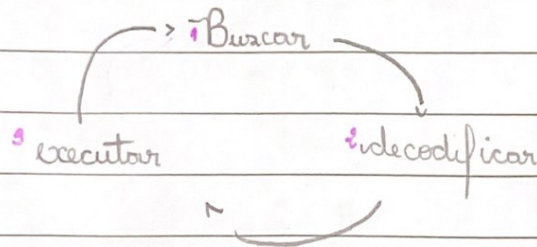 1 Buscar
3 executar 2 decodificar